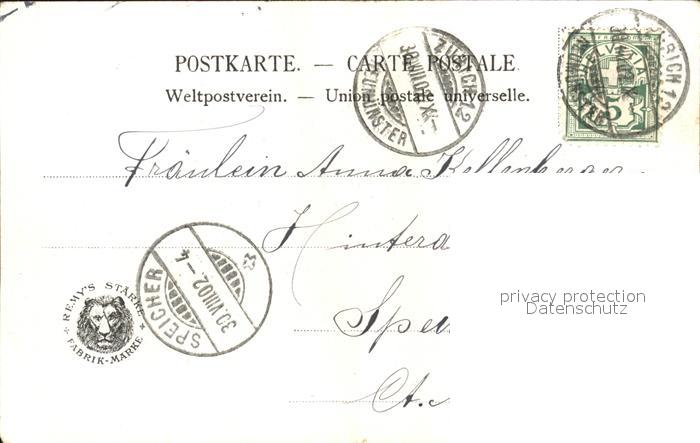 POSTKARTE. — CARTE POSTALE.
Weltpostverein. — Union postale universelle.
ZÜRICH 12
30.VIII.02.XI-
NEUMÜNSTER
HELVETIA
5
ZÜRICH 12
Fräulein Anna Kellenberger
Hintera
Spei
Ct.
SPEICHER
30.VIII02.-4
REMY'S STÄRKE
FABRIK-MARKE
privacy protection
Datenschutz